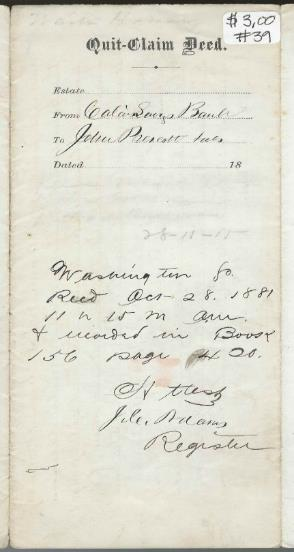 $3,00
#39
Quit-Claim Deed.
Estate
From Calais Savings Bank
To John Prescott
Dated 18
28-11-15
Washington ss.
Recd Oct 28. 1881
11 h 15 m AM.
& recorded in Book
156 page 420.
Attest
J. C. Adams
Register